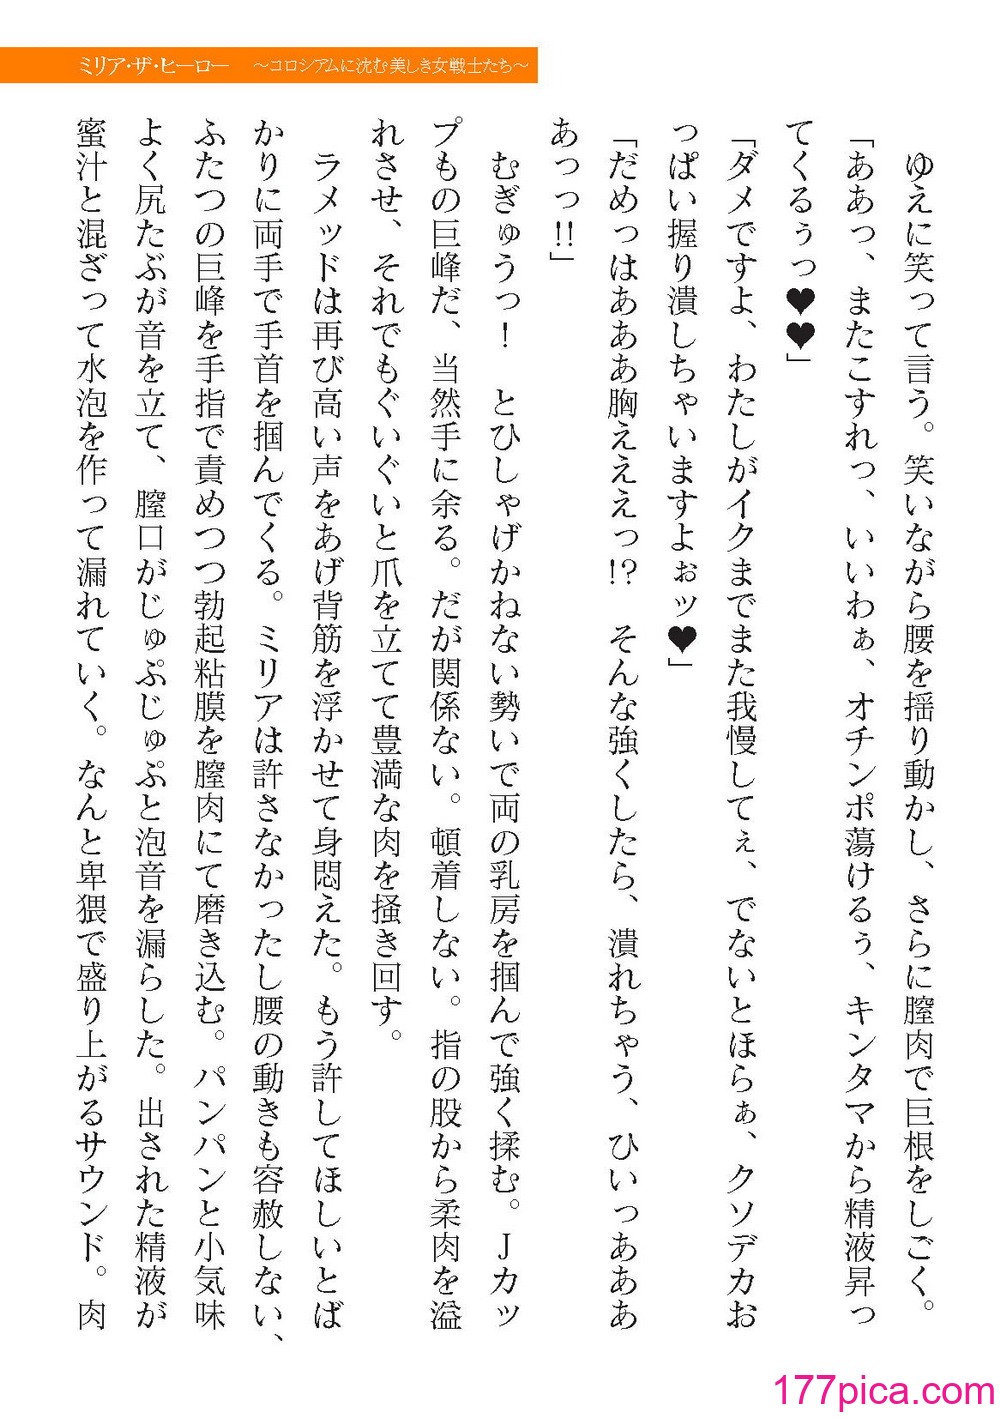 ミリア・ザ・ヒーロー　～コロシアムに沈む美しき女戦士たち～
　ゆえに笑って言う。笑いながら腰を揺り動かし、さらに膣肉で巨根をしごく。
「ああっ、またこすれっ、いいわぁ、オチンポ蕩けるぅ、キンタマから精液昇っ
てくるぅっ♥♥」
「ダメですよ、わたしがイクまでまた我慢してぇ、でないとほらぁ、クソデカお
っぱい握り潰しちゃいますよぉッ♥」
「だめっはあああ胸えええっ!?　そんな強くしたら、潰れちゃう、ひいっあああ
あっっ!!」
　むぎゅうっ！　とひしゃげかねない勢いで両の乳房を掴んで強く揉む。Ｊカッ
プもの巨峰だ、当然手に余る。だが関係ない。頓着しない。指の股から柔肉を溢
れさせ、それでもぐいぐいと爪を立てて豊満な肉を掻き回す。
　ラメッドは再び高い声をあげ背筋を浮かせて身悶えた。もう許してほしいとば
かりに両手で手首を掴んでくる。ミリアは許さなかったし腰の動きも容赦しない、
ふたつの巨峰を手指で責めつつ勃起粘膜を膣肉にて磨き込む。パンパンと小気味
よく尻たぶが音を立て、膣口がじゅぷじゅぷと泡音を漏らした。出された精液が
蜜汁と混ざって水泡を作って漏れていく。なんと卑猥で盛り上がるサウンド。肉
177pica.com